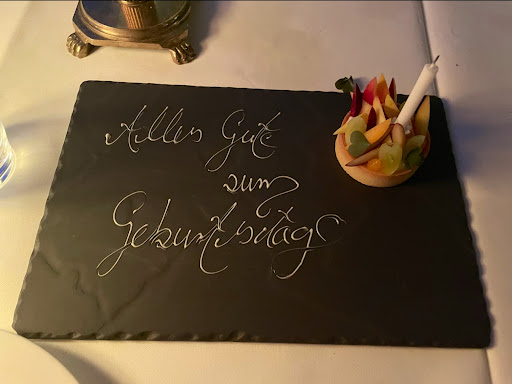 Alles Gute
zum
Geburtstag